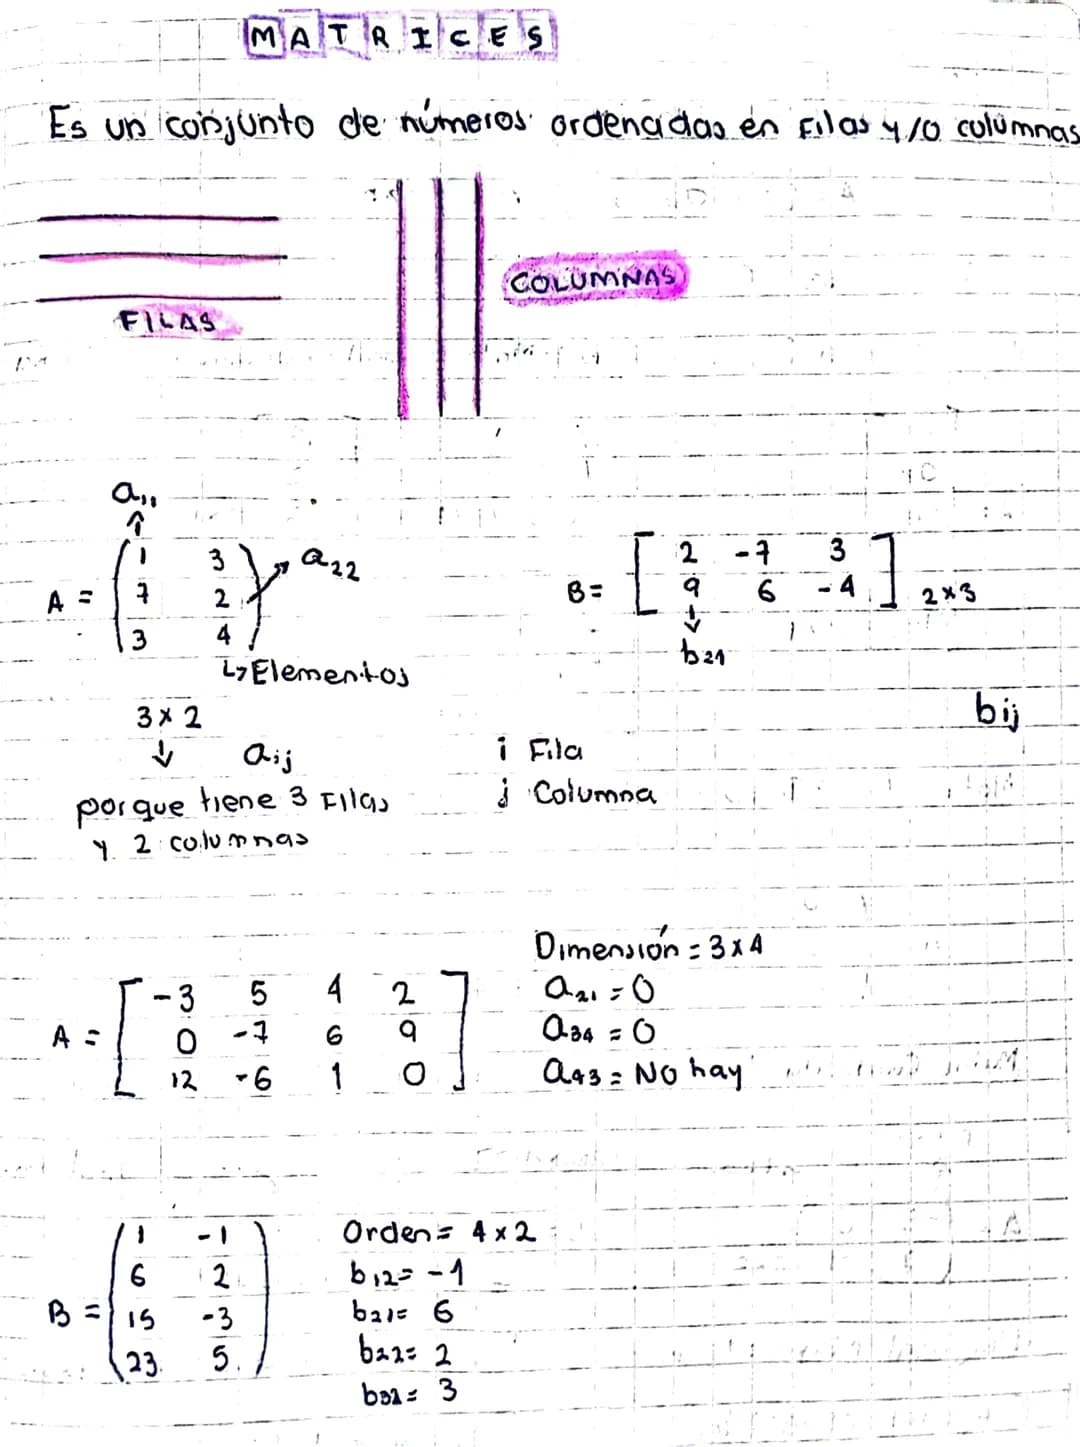 MATRICES
Es un conjunto de números ordenadas en Filas y/o columnas
COLUMNAS
FILAS
a11
A = ( 1 3 ) a22
7 2
3 4
↳ Elementos
3 x 2
↓ aij
porque tiene 3 Filas
y 2 columnas
B = [ 2 -7 3 ]
9 6 -4 2x3
↓
b21
bij
i Fila
j Columna
A = [ -3 5 4 2 ]
0 -7 6 9
12 -6 1 0
Dimensión = 3x4
a21 = 0
a34 = 0
a43 = No hay
B = ( 1 -1 )
6 2
15 -3
23 5
Orden = 4 x 2
b12 = -1
b21 = 6
b22 = 2
b32 = 3